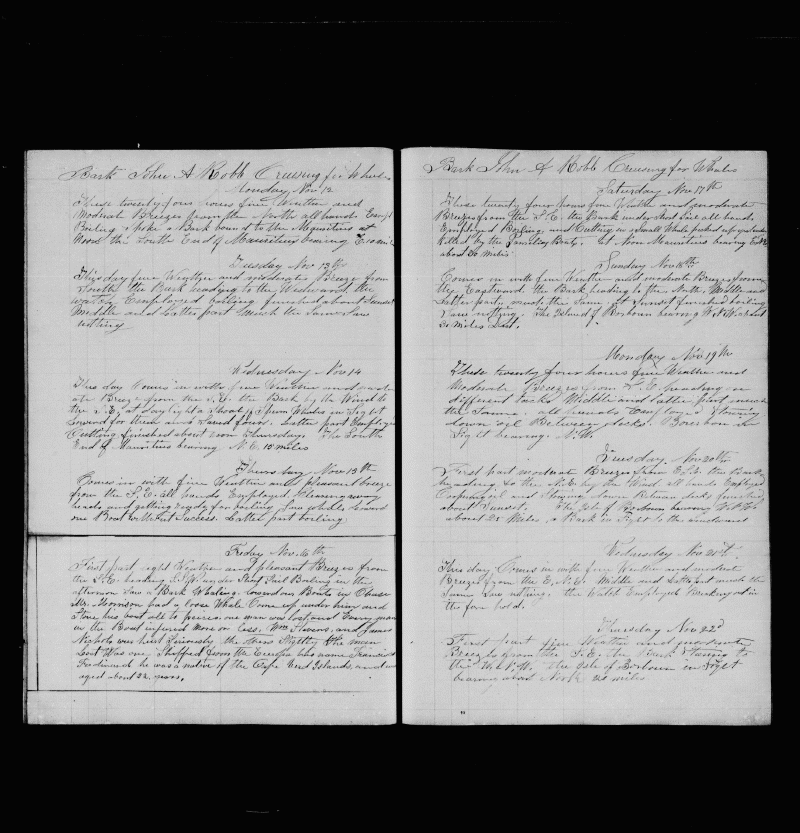 Bark John A Robb Cruising for Whales
Monday Nov 12
These twenty four hours fine Weather and
Moderat Breezes from the North all hands Empl
Boiling spoke a Bark bound to the Mauritius at
Noon the South End of Mauritius bearing E
Tuesday Nov 13th
This day fine Weather and moderate Breeze from
South the Bark heading to the Westward the
watch Employed boiling finished about Sunset
Middle and Latter part Much the Same Saw
nothing
Wednesday Nov 14
This day Comes in with fine Weather and moder
ate Breeze from the S.E. the Bark by the Wind to
the N.E. at daylight a Shoal of Sperm Whales in Sight
Lowered for them and Saved four. Latter part Employed
Cutting finished about noon Thursday. The South
End of Mauritius bearing N.E. 15 miles
Thursday Nov 15th
Comes in with fine Weather and pleasant breeze
from the S.E. all hands Employed Clearing away
heads and getting ready for boiling Saw whales lowered
our Boat without Success. Latter part boiling
Friday Nov. 16th
First part light Weather and pleasant Breezes from
the S.E. heading S.W. under Short Sail Boiling in the
afternoon Saw a Bark Whaling. lowered our Boats in Chase
Mr. Morrison had a loose Whale Come up under him and
Stove his boat all to peices. one man was lost and Every man
in the Boat injured more or less. Wm Stevens, and James
Nichols was hurt Seriously the others Slightly the man
Lost Was one Shipped from the Europa his name Francis
Ferdinand he was a native of the Cape Verd Islands and was
aged about 22 years.
Bark John A Robb Cruising for Whales
Saturday Nov 17th
These twenty four hours fine Weather and moderate
Breezes from the S.E. the Bark under Short Sail all hands
Employed Boiling, and Cutting in a Small Whale picked up yesterday
killed by the Boats. at Noon Mauritius bearing
about 30 miles.
Sunday Nov 18th
Comes in with fine Weather and moderate Breezes from
the Eastward the Bark heading to the North, Middle and
Latter parts much the Same, at Sunset finished boiling
Saw nothing. The Island of Bourbon bearing W.N.W. about
30 miles Dist.
Monday Nov 19th
These twenty four hours fine Weather and
Moderate Breezes from S.E. heading on
different tacks Middle and latter part much
the Same all hands Employed Stowing
down oil Between decks. Bourbon in
Sight bearing N.W.
Tuesday Nov 20th
First part moderat Breezes from E.S.E. the Bark
heading to the N.E. by the Wind all hands Employed
Coopering oil and Stowing down Between decks finished
about Sunset. The Isle of Bourbon bearing
about 25 Miles, a Bark in Sight to the windward
Wednesday Nov 21st
This day Comes in with fine Weather and moderat
Breezes from the E.N.E. Middle and Latter part much the
Same Saw nothing. the Watch Employed Breaking out in
the fore hold.
Thursday Nov 22d
First part fine Weather and moderate
Breezes from the S.E. the Bark Steering to
the W.N.W. the Isle of Bourbon in Sight
bearing about North 25 miles